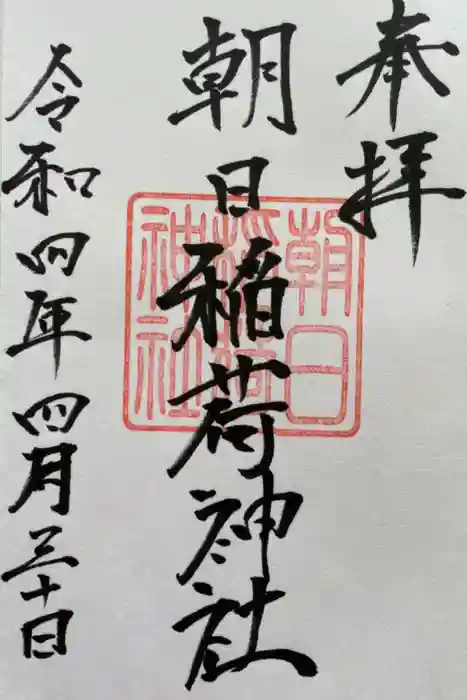 奉拝
朝日稲荷神社
令和四年四月三十日
朝日
稲荷
神社